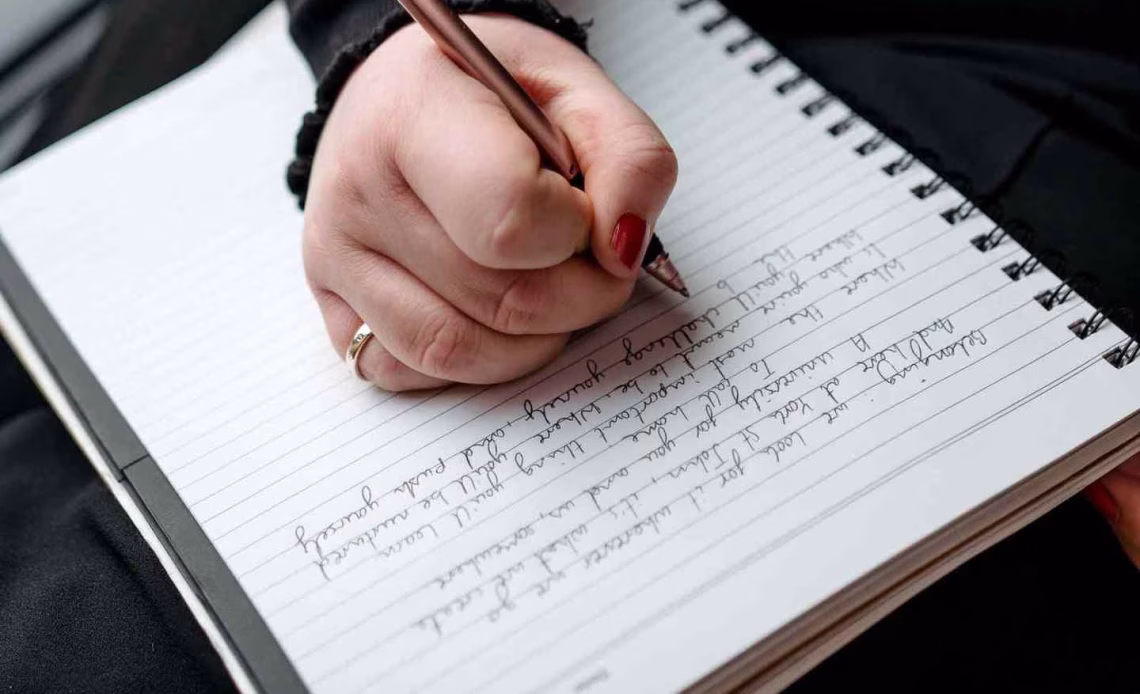 Belonging we look for it wherever we go
And here at York St John, it's what we create
A university for you and us, somewhere
To call home
Where the most important thing you'll learn
Is who you're meant to be. Where you'll be nurtured
Where you'll challenge yourself, and push yourself